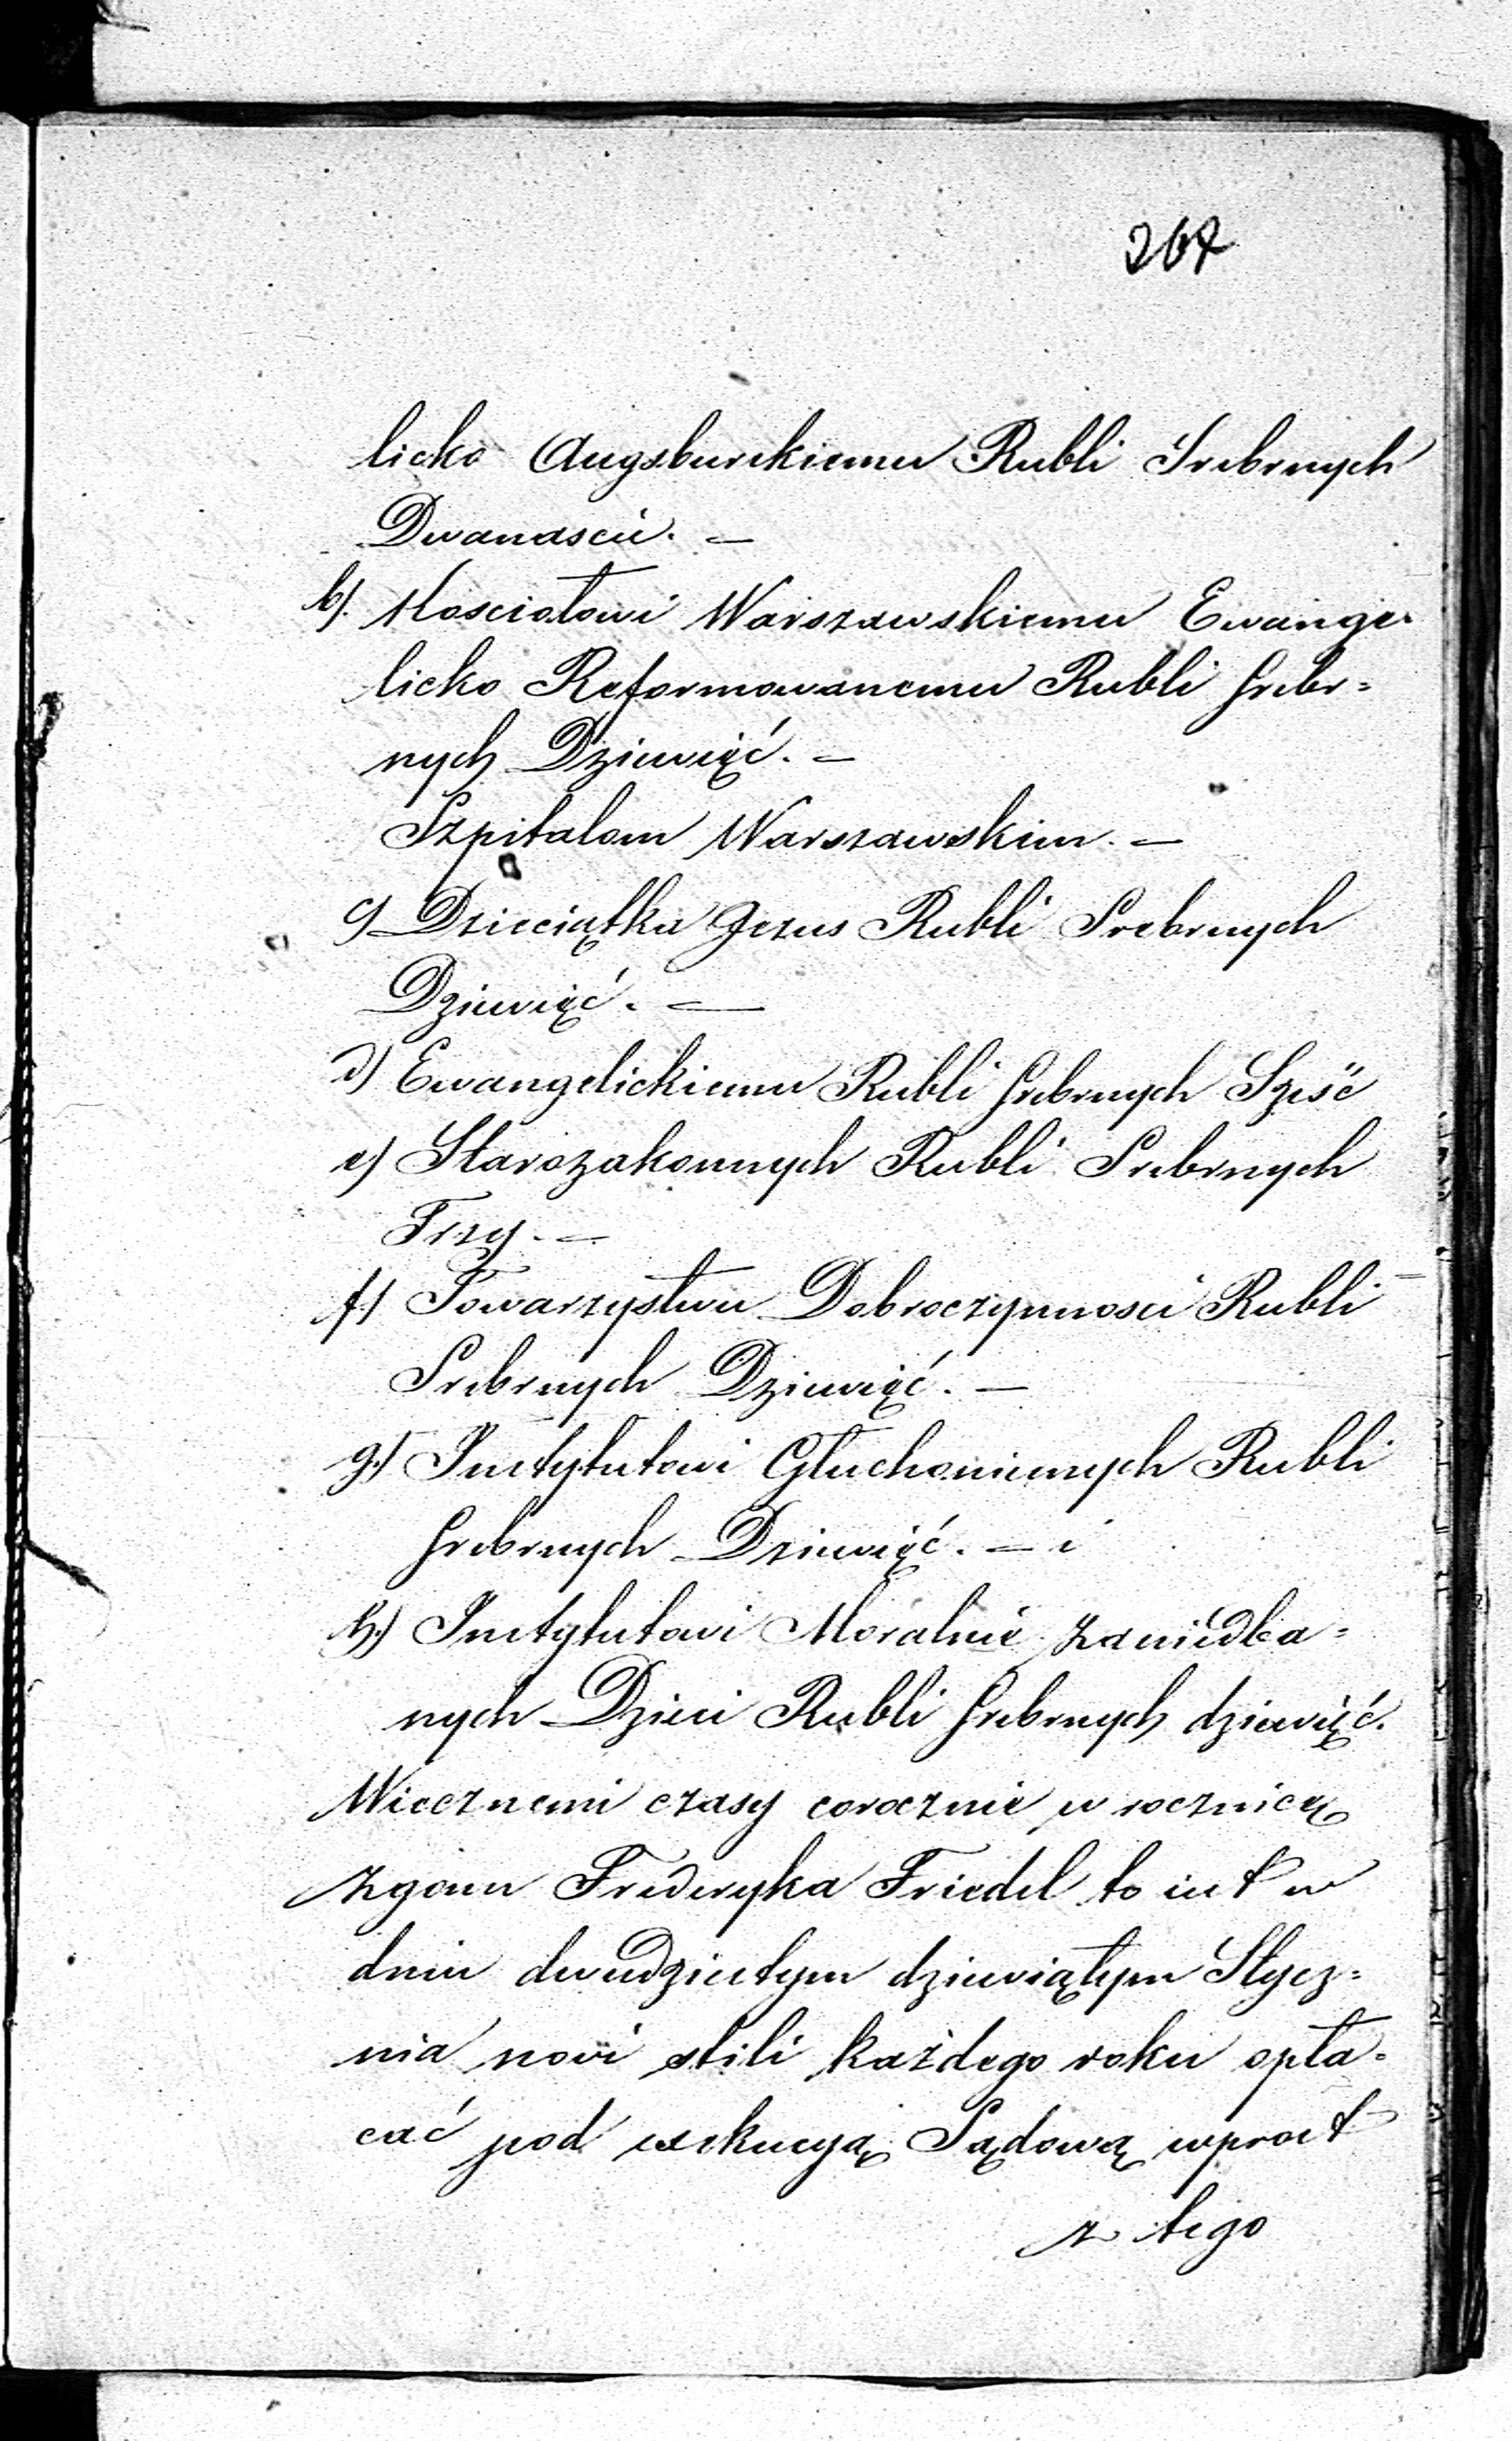 267
licko Augsburskiemu Rubli Srebrnych
Dwanascie. —
b). Kosciołowi Warszawskiemu Ewange-
licko Reformowanemu Rubli srebr=
nych Dziewięć. —
Szpitalom Warszawskim. —
c) Dzieciątka Jezus Rubli Srebrnych
Dziewięć. —
d) Ewangelickiemu Rubli srebrnych Sześć
e) Starozakonnych Rubli Srebrnych
Trzy. —
f.) Towarzystwu Dobroczynnosci Rubli
Srebrnych Dziewięć. —
g.) Instytutowi Głuchoniemych Rubli
srebrnych Dziewięć. — i
h.) Instytutowi Moralnie zaniedba=
nych Dzieci Rubli srebrnych dziewięć.
Wiecznemi czasy corocznie w rocznicę
zgonu Fryderyka Friedel to iest w
dniu dwudziestym dziewiątym Stycz=
nia novi stili każdego roku opła=
cać pod exekucyą Sądową wprost
z tego